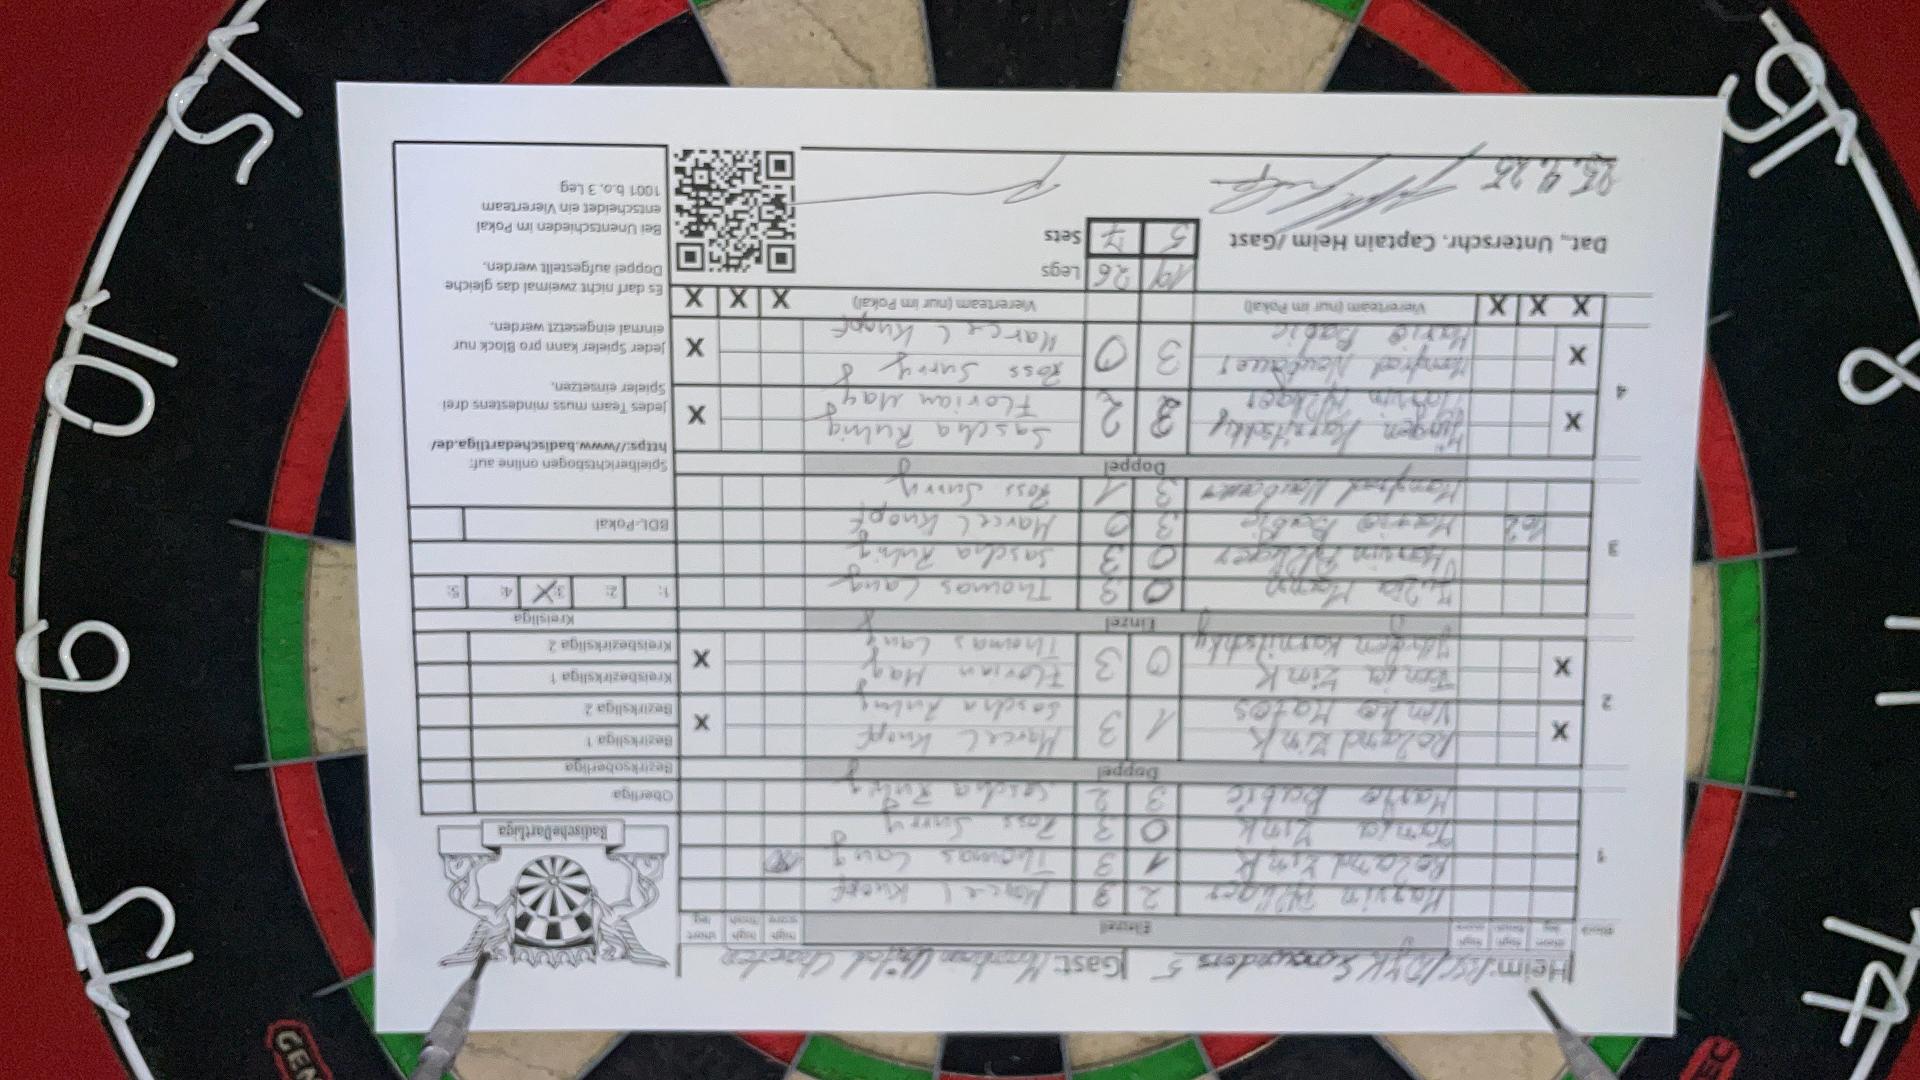 Heim: Gast:
Block short leg high finish high score Einzel high score high finish short leg
1
Marvin Pflüger 2 3 Marcel Knopf
Roland Zink 1 3 Thomas Lang 180
Tanja Zink 0 3 Ross Surry
Mario Babic 3 2 Sascha Rubig
Doppel
2
X Roland Zink 1 3 Marcel Knopf X
Vanko Matos Sascha Rubig
X Tanja Zink 0 3 Florian May X
Jürgen Karnitschky Thomas Lang
Einzel
3
Mann 0 3 Thomas Lang
Marvin Pflüger 0 3 Sascha Rubig
Mario Babic 3 0 Marcel Knopf
Manfred Neubauer 3 1 Ross Surry
Doppel
4
X Jürgen Karnitschky 2 Sascha Rubig X
Marvin Pflüger Florian May
X Manfred Neubauer 3 0 Ross Surry X
Mario Babic Marcel Knopf
X X X Viererteam (nur im Pokal) Viererteam (nur im Pokal) X X X
19 26 Legs
Dat., Unterschr. Captain Heim/Gast 5 7 Sets
BadischeDartLiga
Oberliga
Bezirksoberliga
Bezirksliga 1
Bezirksliga 2
Kreisbezirksliga 1
Kreisbezirksliga 2
Kreisliga
1: 2: 3: X 4: 5:
BDL-Pokal
Spielberichtsbogen online auf:
https://www.badischedartliga.de/
Jedes Team muss mindestens drei
Spieler einsetzen.
Jeder Spieler kann pro Block nur
einmal eingesetzt werden.
Es darf nicht zweimal das gleiche
Doppel aufgestellt werden.
Bei Unentschieden im Pokal
entscheidet ein Viererteam
1001 b.o. 3 Leg
15
10
9
5
16
8
11
14